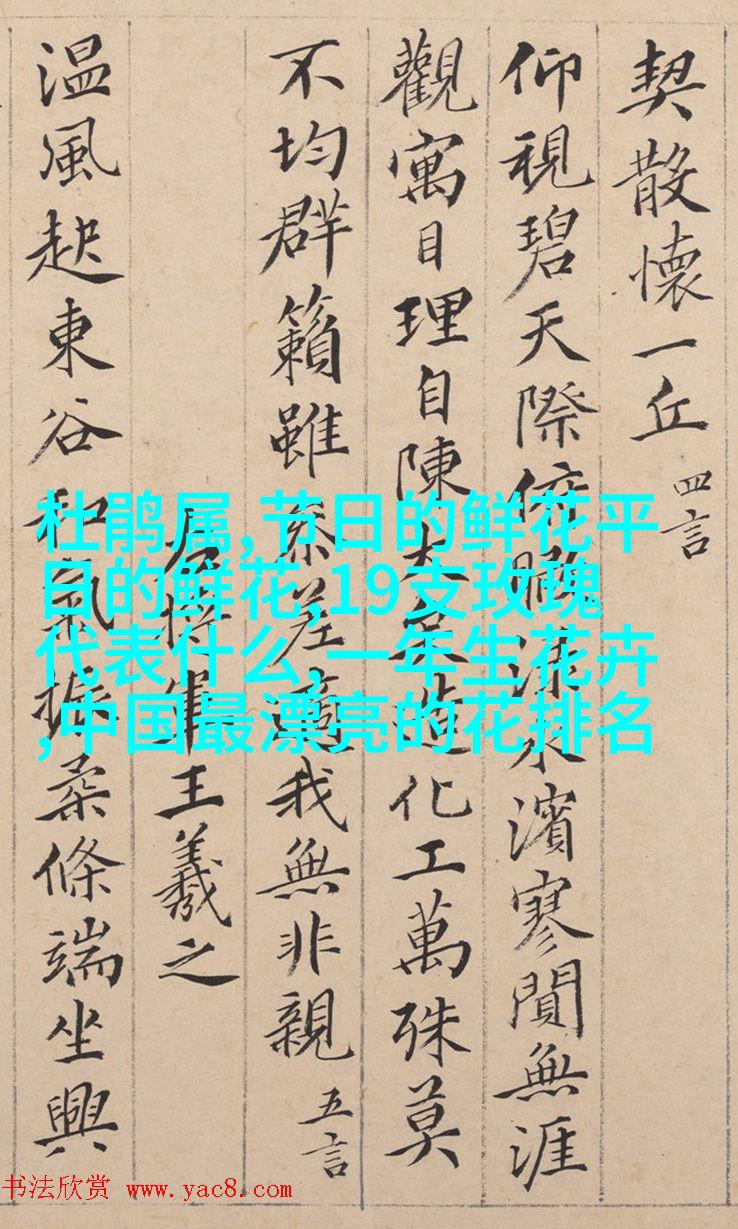 契散懷一丘 四言
仰視碧天際俯瞰淥水濱寥閴無涯
觀寓目理自陳大矣造化工萬殊莫
不均群籟雖參差適我無非親 五言
右將軍王羲之
温風起東谷和氣振柔條端坐興
杜鹃属,节日的鲜花平
日的鲜花,19支玫瑰
代表什么,一年生花卉
,中国最漂亮的花排名
书法欣赏 www.yac8.com